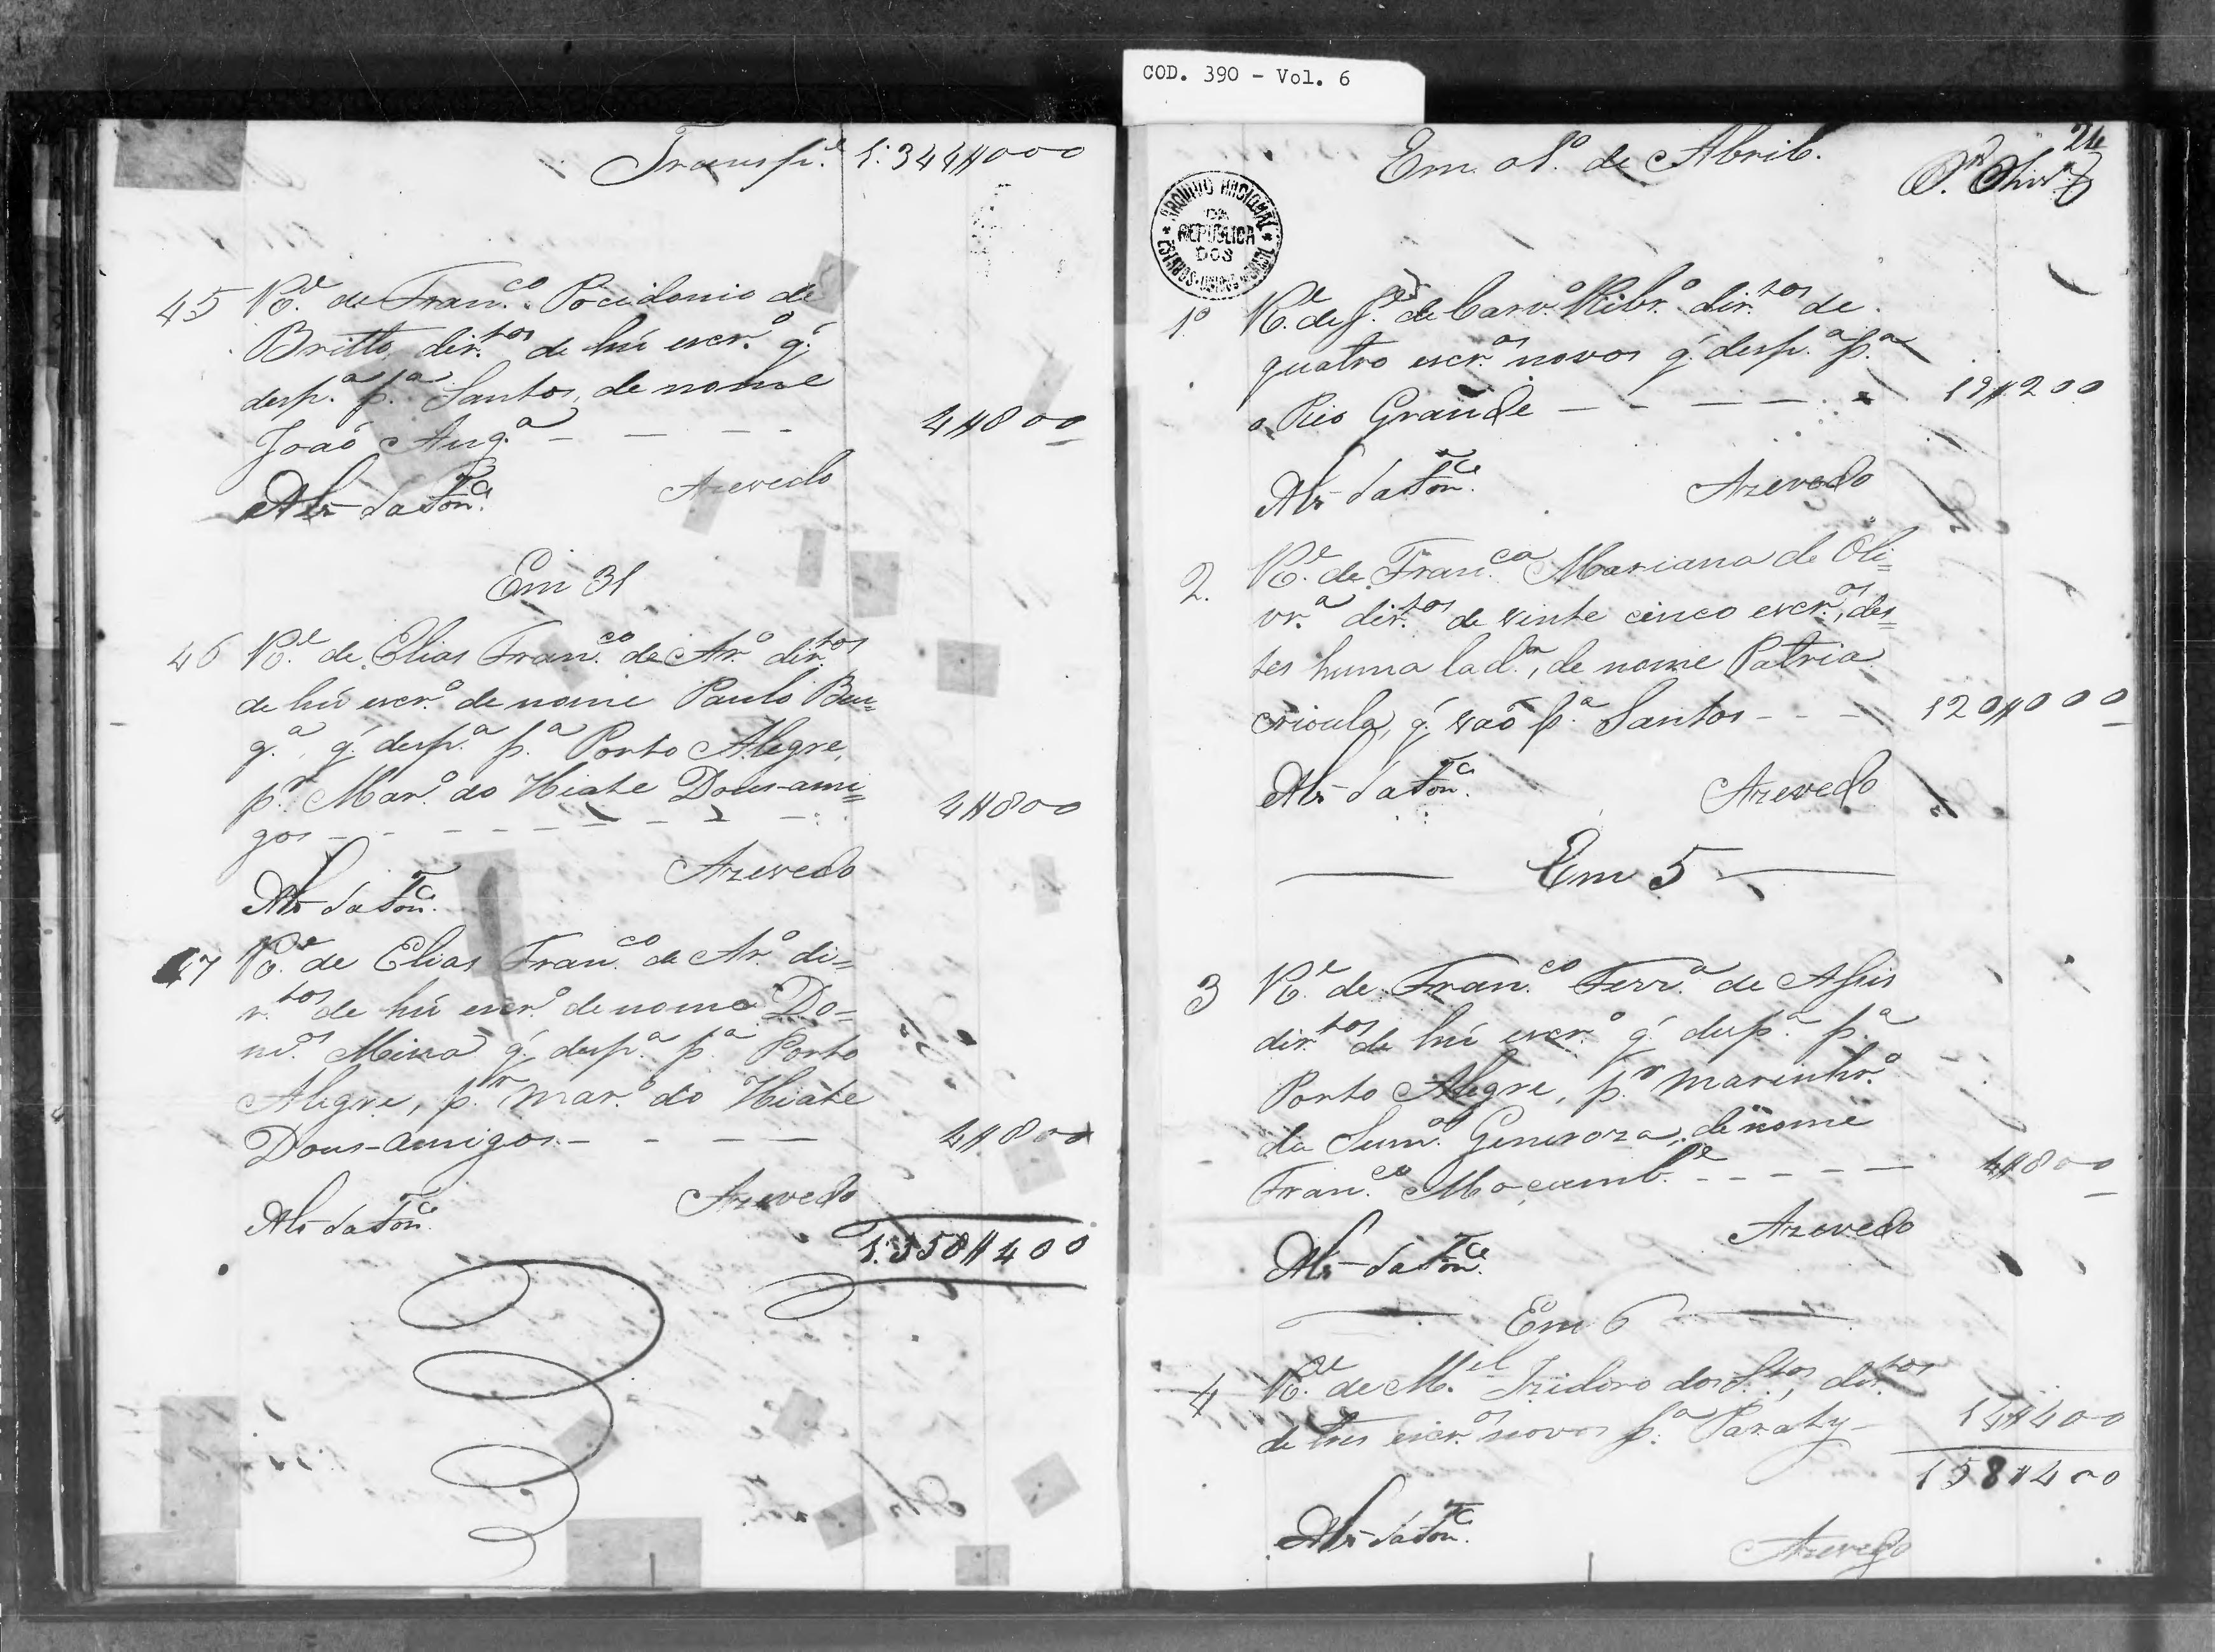 COD. 390 - Vol. 6
Transp.e 1:344#000
45 R.e de Fran.co Pocidonio de
Britto dir.tos de hú escr.o q.
desp.a p.a Santos, de nome
João Ang.a - - - - 4#800
Azevedo
Em 31
46 R.e de Elias Fran.co de Ar.o dir.tos
de hú escr.o de nome Paulo Ben=
g.a, q. desp.a p.a Porto Alegre,
p.r Mar.o do Hiate Dous-ami=
gos - - - - - - - - 4#800
Azevedo
47 R.e de Elias Fran.co de Ar.o di=
r.tos de hú escr.o de nome Do=
m.os Mina q. desp.a p.a Porto
Alegre, p.r mar.o do Hiate
Dous-amigos - - - - 4#800
Azevedo
1:358#400
24
Em o 1.o de Abril.
ARQUIVO NACIONAL
DA
REPUBLICA
DOS
ESTADOS-UNIDOS
1.o R.e de J.e de Carv.o Ribr.o dir.tos de
quatro escr.os novos q. desp.a p.a
o Rio Grande - - - - - 19#200
Azevedo
2. R.e de Fran.ca Mariana de Oli=
vr.a dir.tos de vinte cinco escr.os, des=
tes huma lad.na, de nome Patria
crioula, q. vaõ p.a Santos - - - 120#000
Azevedo
Em 5
3 R.e de Fran.co Ferr.a de Assis
dir.tos de hú escr.o q. desp.a p.a
Porto Alegre, p.r marinhr.o
da Sum.a Generoza, de nome
Fran.co Moçamb.e - - - - 4#800
Azevedo
Em 6
4 R.e de M.el Izidoro dos S.tos, dir.tos
de tres escr.os novos p.a Paraty - 14#400
158#400
Azevedo